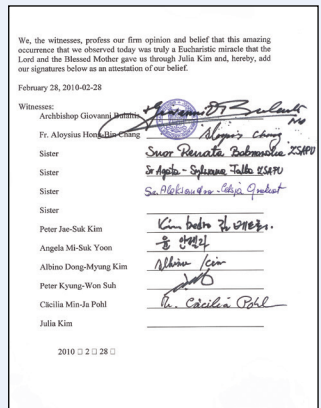 We, the witnesses, profess our firm opinion and belief that this amazing
occurrence that we observed today was truly a Eucharistic miracle that the
Lord and the Blessed Mother gave us through Julia Kim and, hereby, add
our signatures below as an attestation of our belief.
February 28, 2010-02-28
Witnesses:
Archbishop Giovanni Bulaitis
Fr. Aloysius Hong-Bin Chang Aloysius Chang
Sister Suor Renata
Sister Sr Agata - ZSAPU
Sister Sr.
Sister
Peter Jae-Suk Kim Kim 김
Angela Mi-Suk Yoon 윤 안젤라
Albino Dong-Myung Kim Albino Kim
Peter Kyung-Won Suh
Cäcilia Min-Ja Pohl M. Cäcilia Pohl
Julia Kim
2010 □ 2 □ 28 □